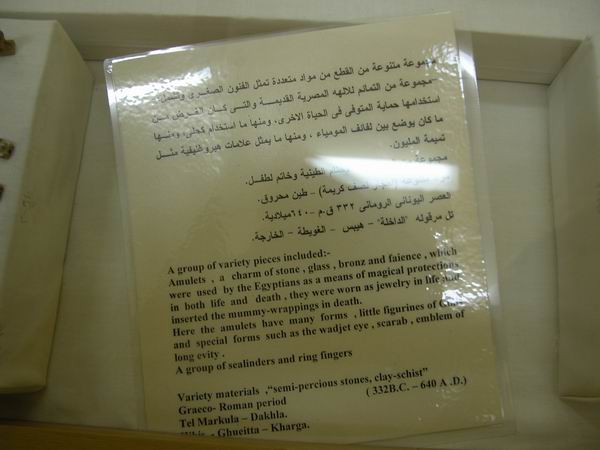 مجموعة متنوعة من القطع من مواد متعددة تمثل الفنون الصغرى وتشمل
-مجموعة من التمائم للالهه المصرية القديمة والتى كان الغرض من
استخدامها حماية المتوفى فى الحياة الاخرى، ومنها ما استخدام كحلى، ومنها
ما كان يوضع بين لفائف المومياء ، ومنها ما يمثل علامات هيروغليفية مثل
تميمة المليون.
مجموعة الطينية وخاتم لطفل.
متنوعة (احجار نصف كريمة) – طين محروق.
العصر اليونانى الرومانى ٣٣٢ ق.م – ٦٤٠ميلادية.
تل مرقوله "الداخلة" – هيبس – الغويطة – الخارجة.
A group of variety pieces included:-
Amulets , a charm of stone , glass , bronz and faience , which
were used by the Egyptians as a means of magical protections
in both life and death , they were worn as jewelry in life and
inserted the mummy-wrappings in death.
Here the amulets have many forms , little figurines of Gods
and special forms such as the wadjet eye , scarab , emblem of
long evity .
A group of sealinders and ring fingers
Variety materials ,“semi-percious stones, clay-schist”
Graeco- Roman period ( 332B.C. – 640 A .D.)
Tel Markula – Dakhla.
Hibis - Ghueitta – Kharga.